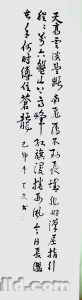 天高雲淡望斷南飛雁不到長城非好漢屈指行
程二萬六盤山上高峰紅旗漫捲西風今日長纓
在手何時縛住蒼龍
己卯年